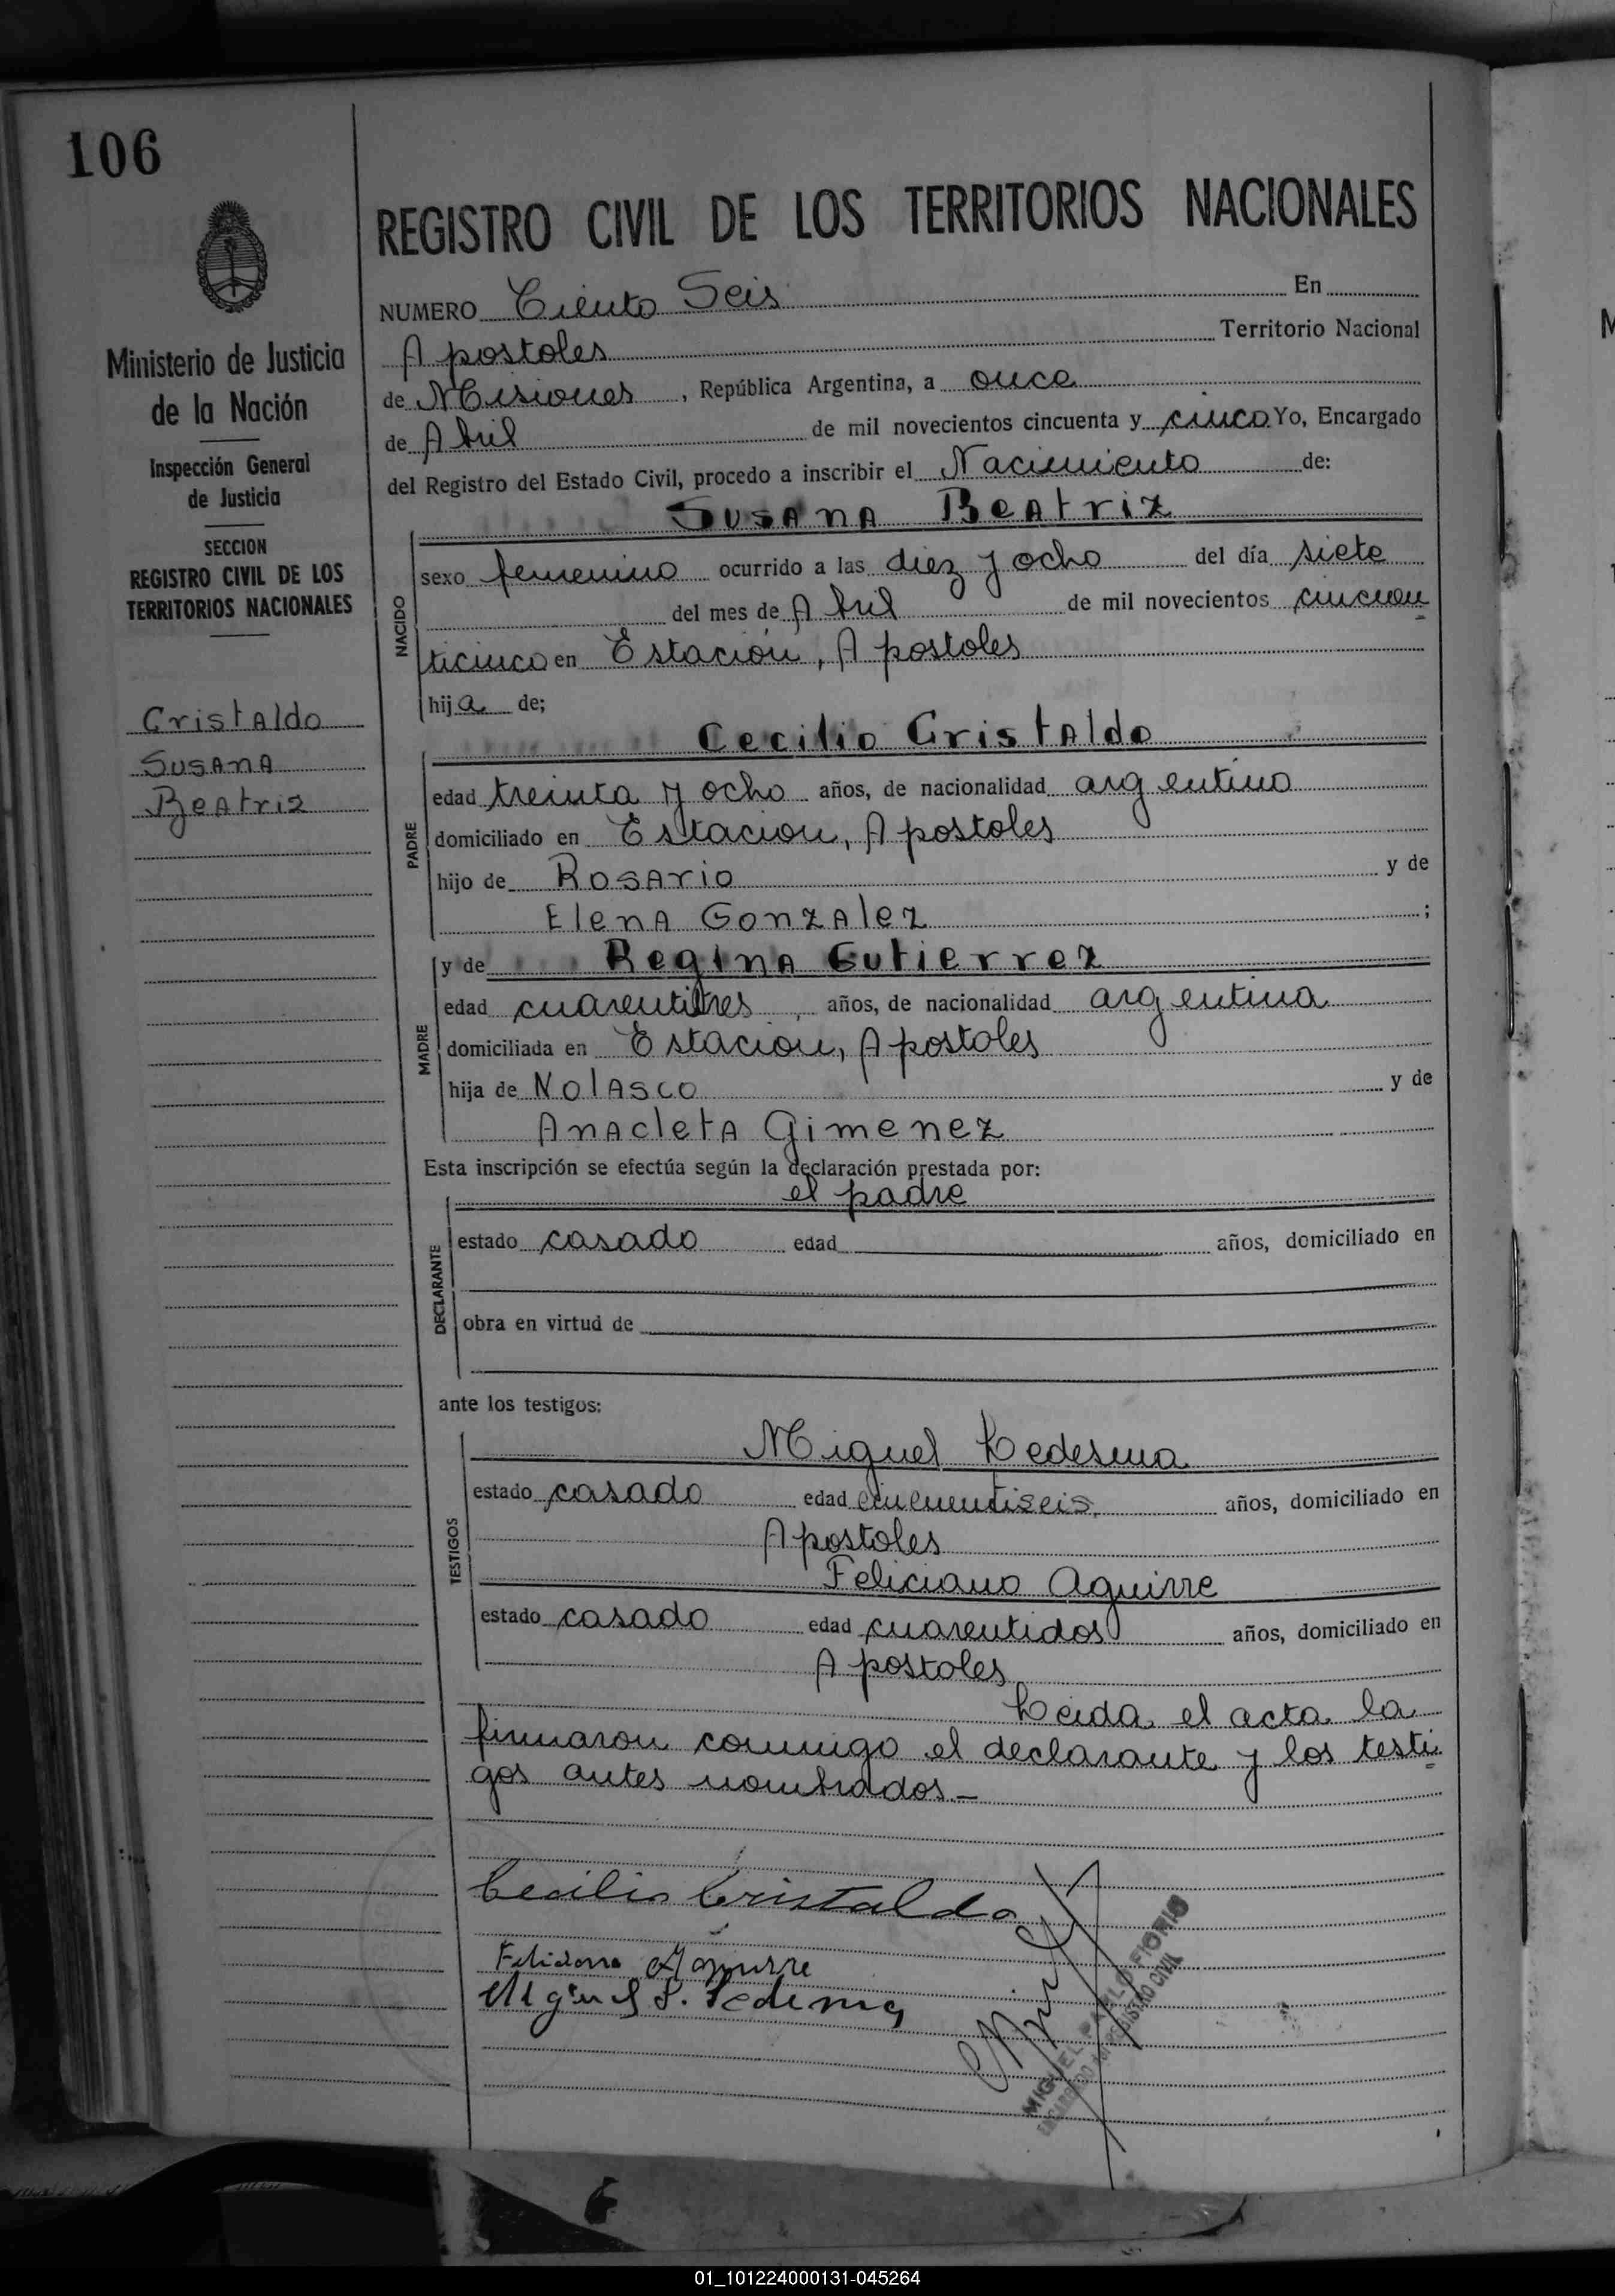 106
REGISTRO CIVIL DE LOS TERRITORIOS NACIONALES
Ministerio de Justicia
de la Nación
Inspección General
de Justicia
SECCION
REGISTRO CIVIL DE LOS
TERRITORIOS NACIONALES
Cristaldo
Susana
Beatriz
NUMERO Ciento Seis En
Apostoles Territorio Nacional
de Misiones, República Argentina, a once
de Abril de mil novecientos cincuenta y cinco Yo, Encargado
del Registro del Estado Civil, procedo a inscribir el Nacimiento de:
Susana Beatriz
NACIDO
sexo femenino ocurrido a las diez y ocho del día siete
del mes de Abril de mil novecientos cincuen
ticinco en Estación, Apostoles
hija de;
Cecilio Cristaldo
PADRE
edad treinta y ocho años, de nacionalidad argentino
domiciliado en Estacion, Apostoles
hijo de Rosario y de
Elena Gonzalez ;
y de Regina Gutierrez
MADRE
edad cuarentitres, años, de nacionalidad argentina
domiciliada en Estacion, Apostoles
hija de Nolasco y de
Anacleta Gimenez
Esta inscripción se efectúa según la declaración prestada por:
el padre
DECLARANTE
estado casado edad años, domiciliado en
obra en virtud de
ante los testigos:
Miguel Ledesma
TESTIGOS
estado casado edad cincuentiseis, años, domiciliado en
Apostoles
Feliciano Aguirre
estado casado edad cuarentidos años, domiciliado en
Apostoles
Leida el acta la
firmaron conmigo el declarante y los testi
gos antes nombrados.-
Cecilio Cristaldo
Feliciano Aguirre
Miguel S. Ledesma
MIGUEL PABLO FIORIO
ENCARGADO del REGISTRO CIVIL
01_101224000131-045264